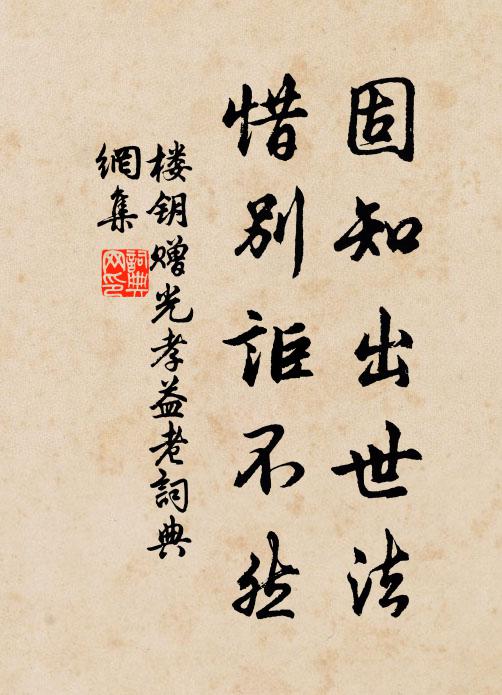 固知出世法
惜别詎不然
楼钥赠光孝益老詞典
網集
詞典
网印